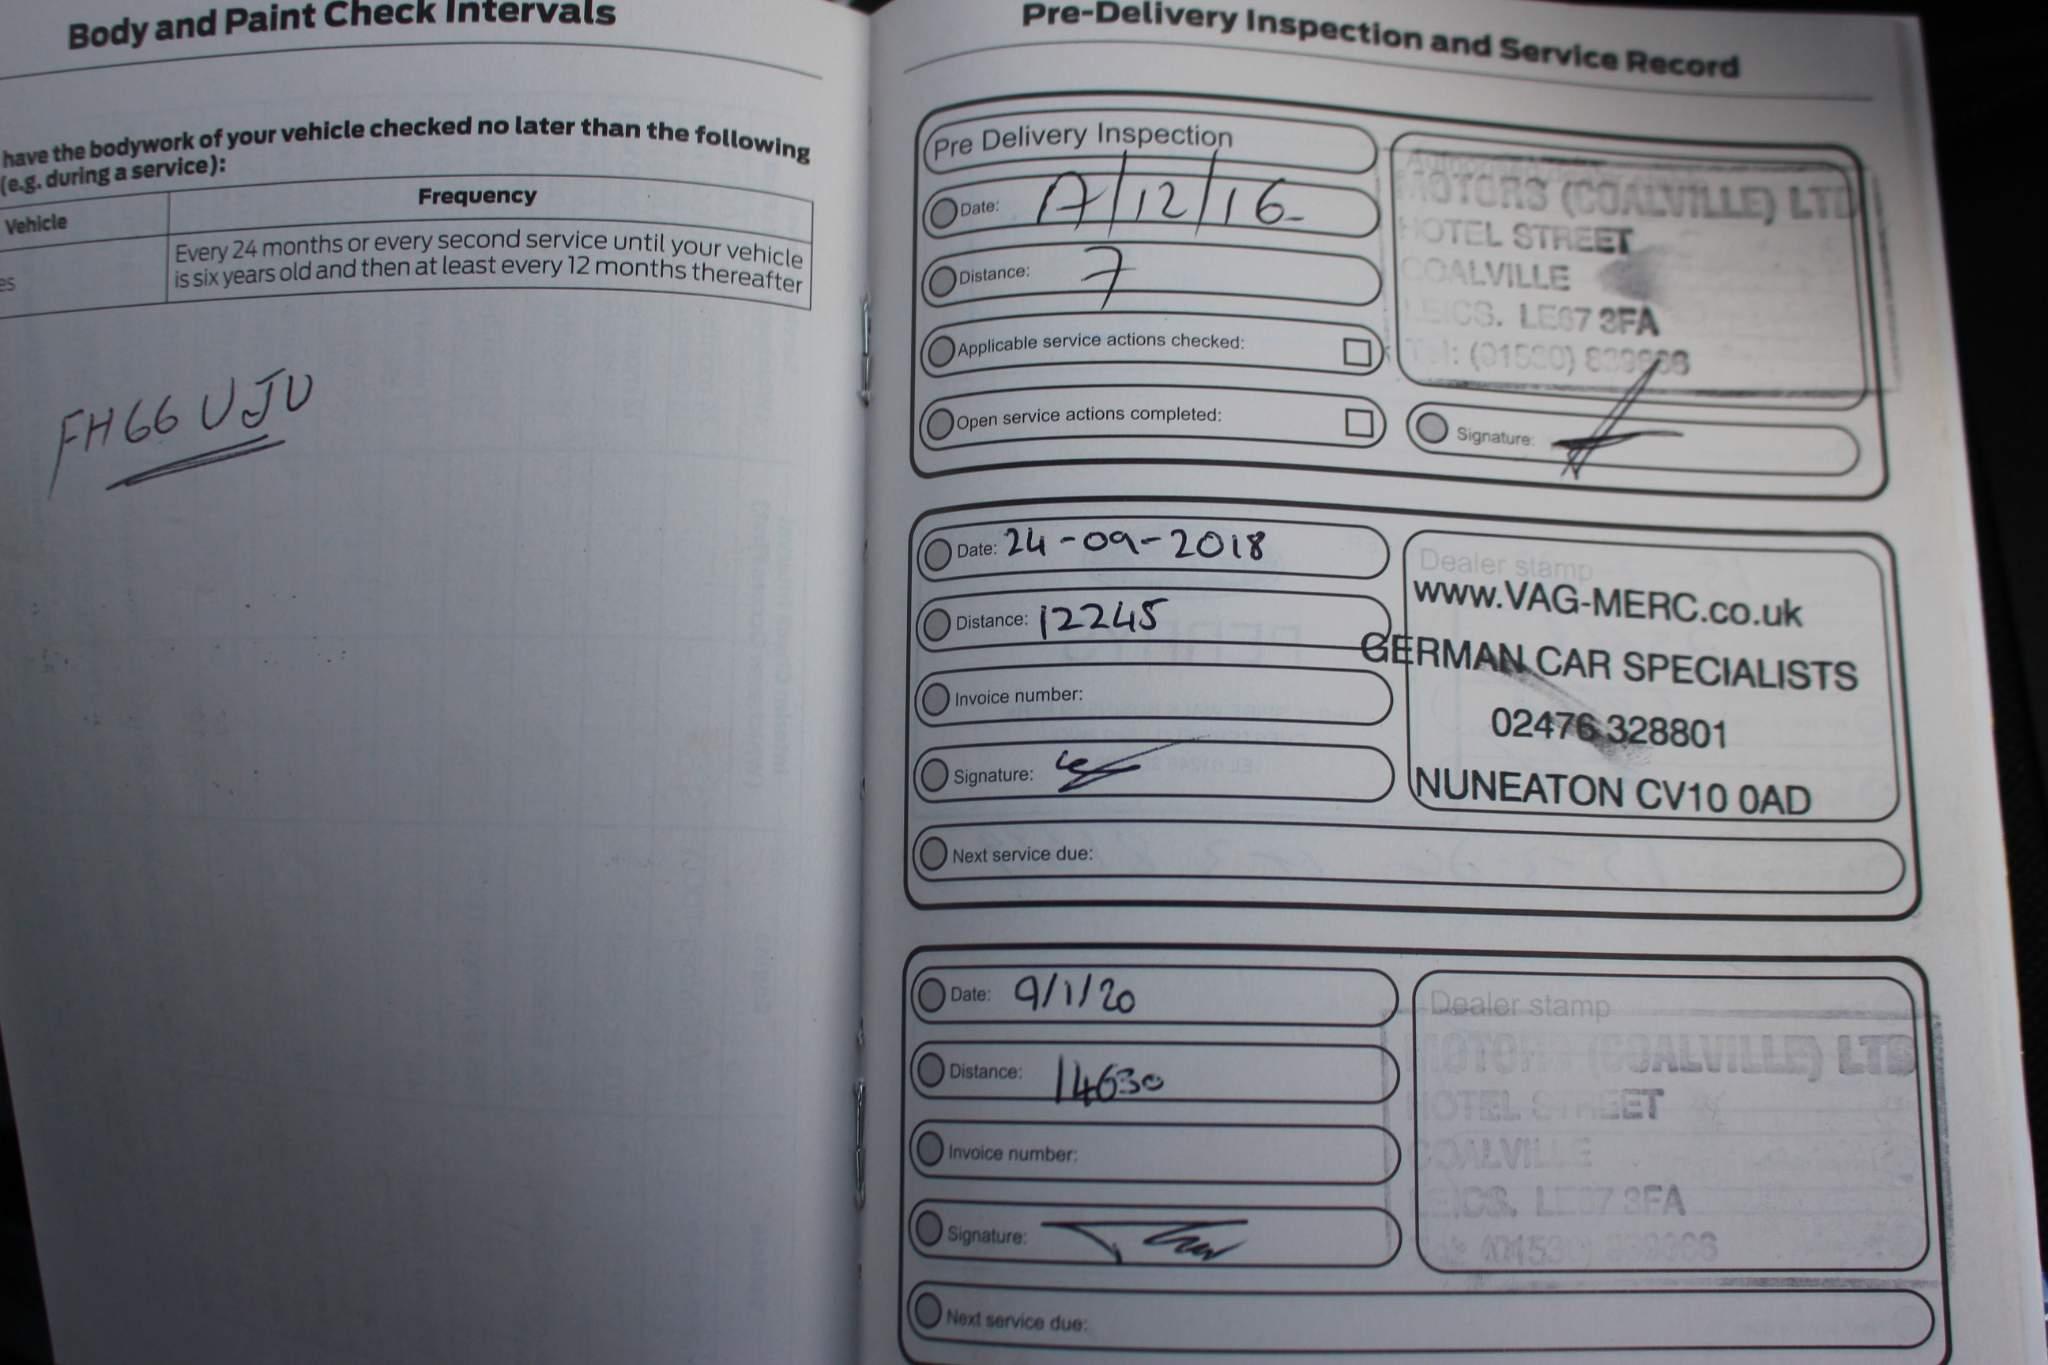 Body and Paint Check Intervals
have the bodywork of your vehicle checked no later than the following
(e.g. during a service):
Vehicle
Frequency
es
Every 24 months or every second service until your vehicle
is six years old and then at least every 12 months thereafter
FH66 UJU
Pre-Delivery Inspection and Service Record
Pre Delivery Inspection
Date: /12/16
Distance: 7
Applicable service actions checked:
Open service actions completed:
MOTORS (COALVILLE) LTD
HOTEL STREET
COALVILLE
LEICS. LE67 3FA
Tel: (01530)
Signature:
Date: 24-09-2018
Distance: 12245
Invoice number:
Signature:
Next service due:
Dealer stamp
www.VAG-MERC.co.uk
GERMAN CAR SPECIALISTS
02476 328801
NUNEATON CV10 0AD
Date: 9/1/20
Distance: 14630
Invoice number:
Signature:
Next service due:
Dealer stamp
MOTORS (COALVILLE) LTD
HOTEL STREET
COALVILLE
LEICS. LE67 3FA